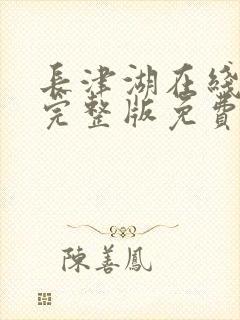 長津湖在綫
完整版免費
陳善鳳